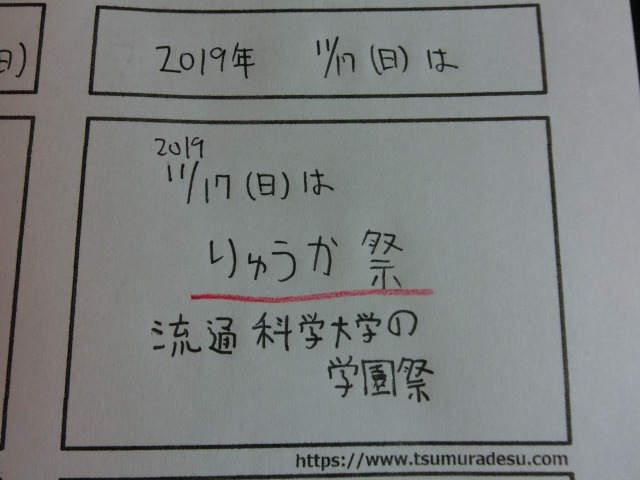 日)
2019年 11/17(日)は
2019
11/17(日)は
りゅうか祭
流通科学大学の
学園祭
https://www.tsumuradesu.com